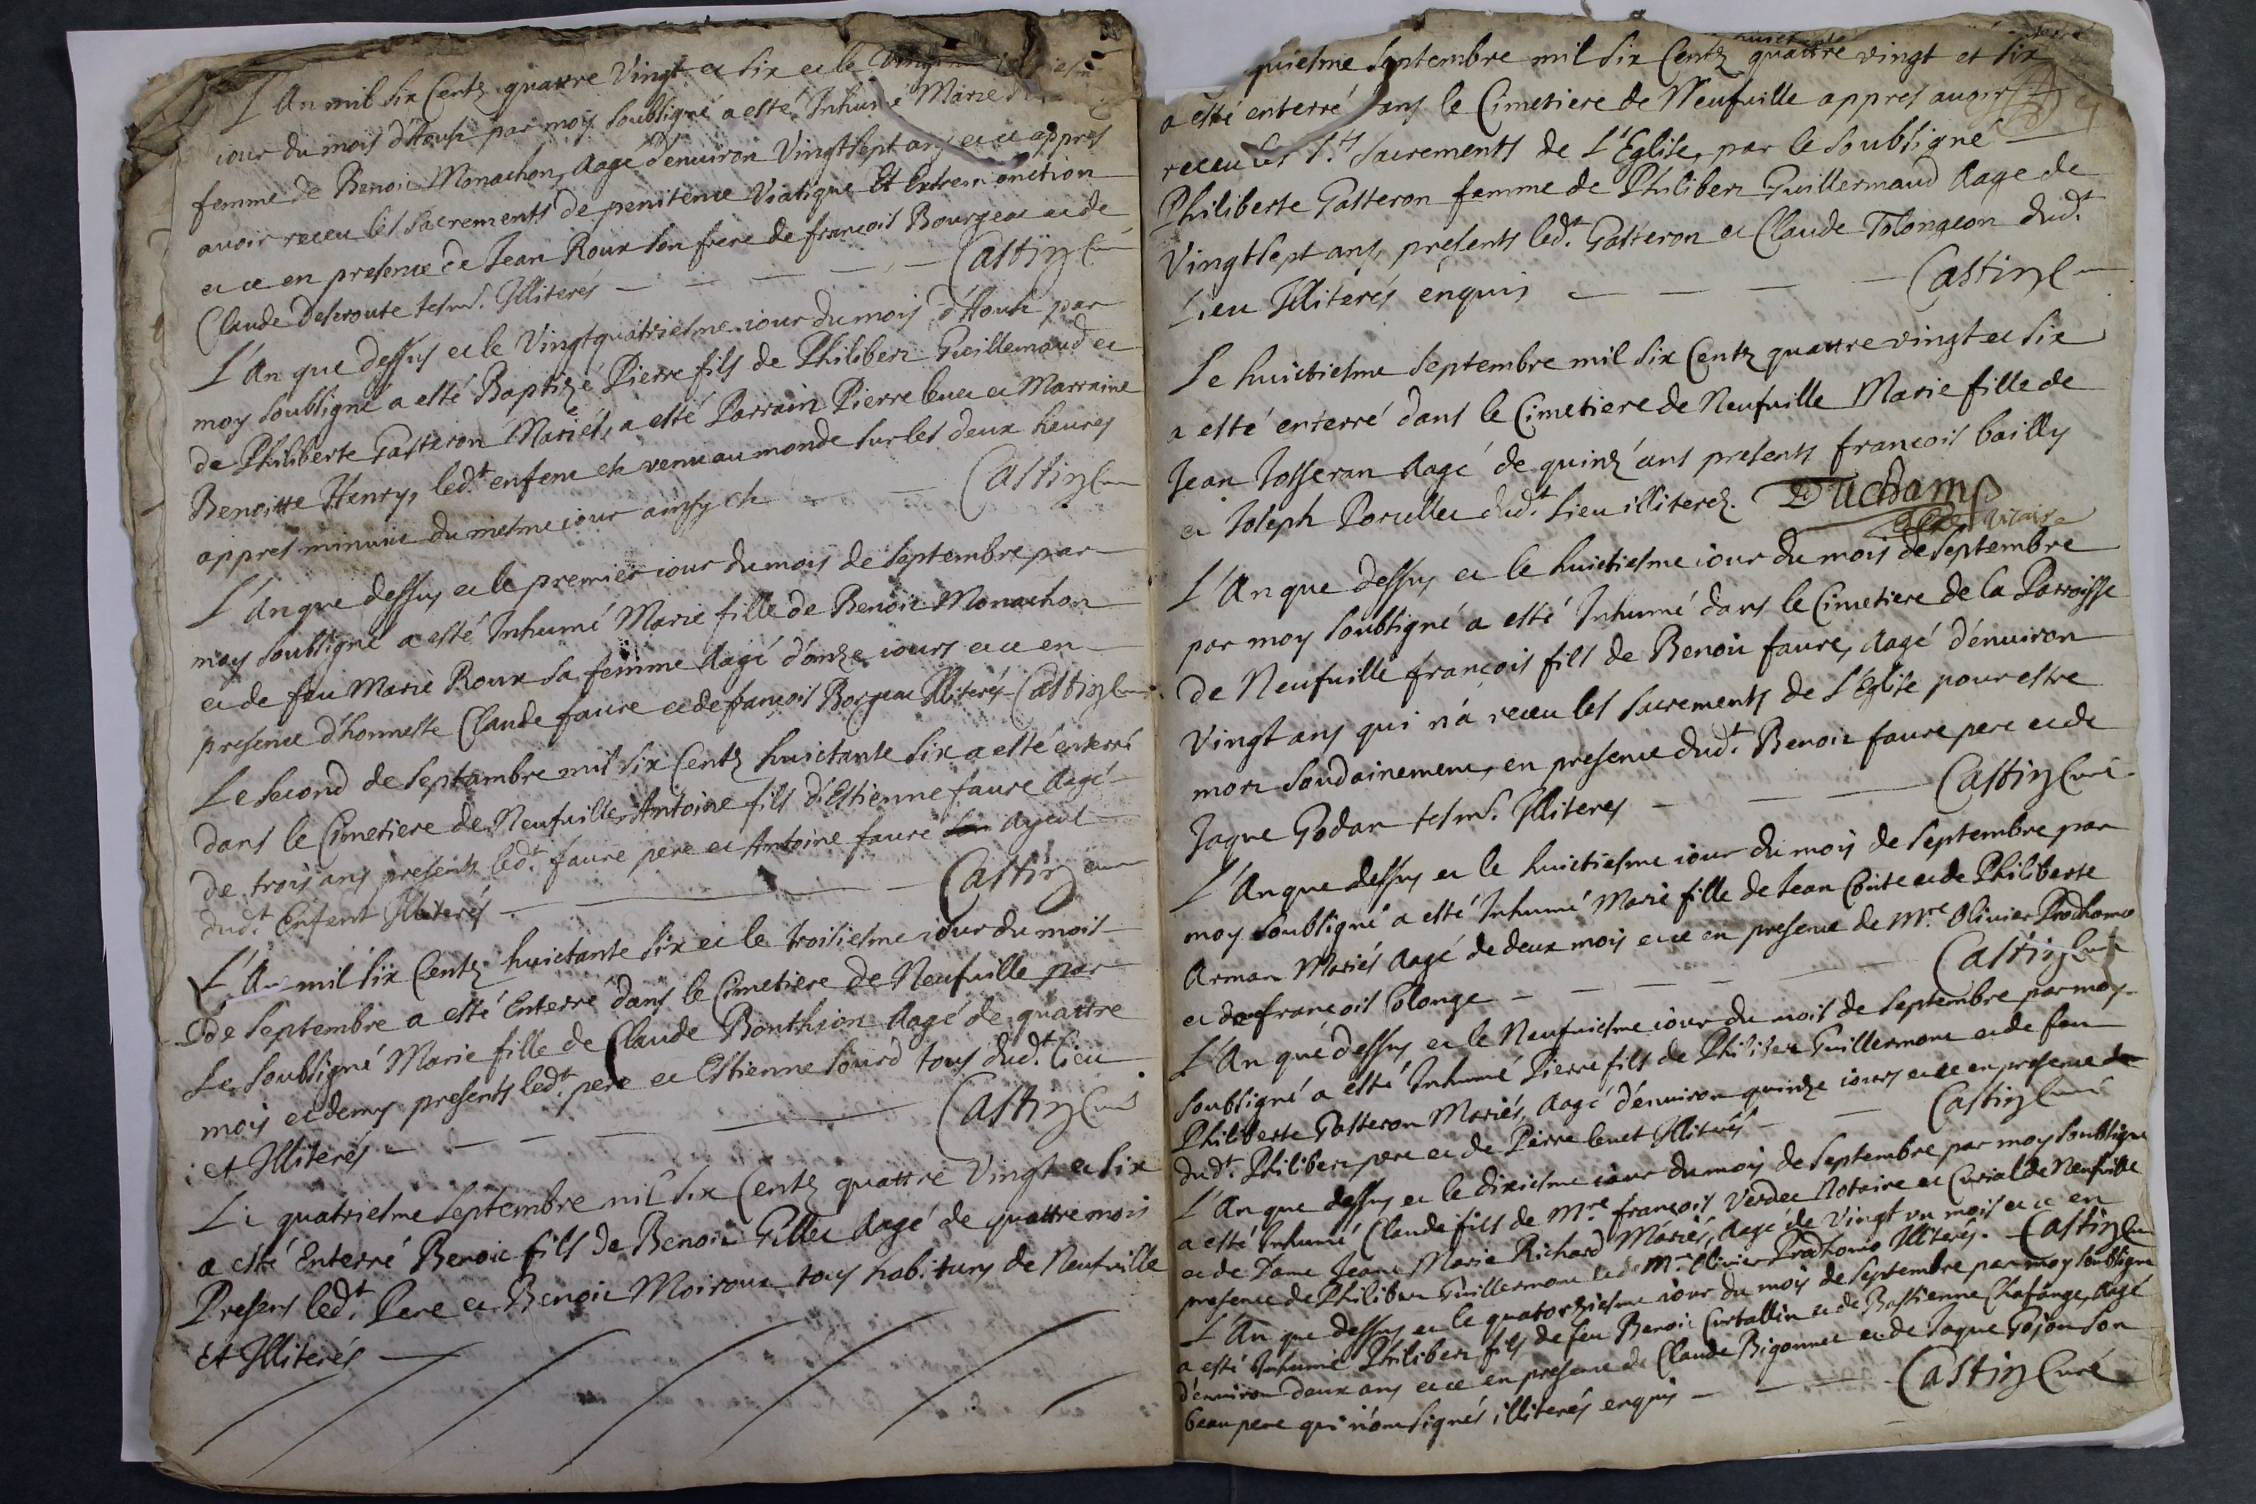 L'An mil six Centz quattre Vingt et six et le
iour du mois d'Aoust par moy soubsigné a esté Inhumé Marie
femme de Benoit Monachon, Aagé d'enuiron Vingtsept ans et ce appres
auoir receu les sacrements de penitence Viatique Et Extrem onction
et ce en presence de Jean Roux son frere de françois Bourgeat et de
Claude descroute tesm. Illiterés Castin C
L'An que dessus et le Vingtquatriesme iour du mois d'Aoust par
moy soubsigné a esté Baptizé Pierre fils de Philibert Guillemaud et
de Philiberte Gasteron Mariés, a esté Parrain Pierre leuet et Marraine
Benoitte Henry, led.t enfent est venu au monde sur les deux heures
appres minuict du mesme iour ainsy est Castin Cure
L'An que dessus et le premier iour du mois de septembre par
moy soubsigné a esté Inhumé Marie fille de Benoit Monachon
et de feu Marie Roux sa femme Aagé d'onze iours et ce en
presence d'honneste Claude faure et de françois Borgeat Illiterés Castin Cure
Le second de septembre mil six Centz huictante six a esté enterré
dans le Cimetiere de Neufuille Antoine fils d'Estienne faure Aagé
de trois ans presents led.t faure pere et Antoine faure ayeul
dud.t Enfent Illiterés Castin Cure
L'An mil six Centz huictante six et le troisiesme iour du mois
De septembre a esté Enterré dans le Cimetiere de Neufuille par
Le soubsigné Marie fille de Claude Bonthion Aagé de quattre
mois et demy presents led.t pere et Estienne sourd tous dud.t Lieu
et Illiterés Castin Curé
Le quatriesme septembre mil six Centz quattre Vingt et six
a esté Enterré Benoit fils de Benoit Gillet Aagé de quattre mois
Presens led.t Pere et Benoit Moiroux tous habitans de Neufuille
Et Illiterés
quiesme septembre mil six Centz quattre vingt et six
a esté enterré dans le Cimetiere de Neufuille appres auoir
receu les S.ts sacrements de L'Eglise, par le soubsigné
Philiberte Gasteron femme de Philibert Guillermaud Aage de
Vingtsept ans, presents led.t Gasteron et Claude Tolongeon dud.t
Lieu Illiterés enquis Castin C
Le huictiesme septembre mil six Centz quattre vingt et six
a esté enterré dans le Cimetiere de Neufuille Marie fille de
Jean Josseran Aagé de quinze ans presents francois bailly
et Joseph Porcellet dud.t Lieu illiterez. Duchamp
vicaire
L'An que dessus et le huictiesme iour du mois de septembre
par moy soubsigné a esté Inhumé dans le Cimetiere de la Parroisse
de Neufuille françois fils de Benoit faure, Aagé d'enuiron
Vingt ans qui n'a receu les sacrements de L'Eglise pour estre
mort soudainement, en presence dud.t Benoit faure pere et de
Jaque Godar tesm. Illiteres Castin Curé
L'An que dessus et le huictiesme iour du mois de septembre par
moy soubsigné a esté Inhumé Marie fille de Jean Conte et de Philiberte
Arman Mariés Aagé de deux mois et ce en presence de M.re Olivier Prodhomo
et de françois Tolonge Castin Cure
L'An que dessus et le Neufuiesme iour du mois de septembre par moy
soubsigné a esté Inhumé Pierre fils de Philibert Guillermont et de feu
Philiberte Gasteron Mariés, Aagé d'enuiron quinze iours et ce en presence
dud.t Philibert pere et de Pierre leuet Illiterés Castin Curé
L'An que dessus et le dixiesme iour du mois de septembre par moy soubsigné
a esté Inhumé Claude fils de M.re françois Verdet Notaire et Curial de Neufuille
et de Dame Jeane Marie Richard Mariés, Aagé de Vingt vn mois et ce en
presence de Philibert Guillermont et de M.re Olivier Prodhomo Illiterés. Castin Cure
L'An que dessus et le quatorziesme iour du mois de septembre par moy soubsigné
a esté Inhumé Philibert fils de feu Benoit Curtallin et de Bastienne Chafange, Aagé
d'enuiron deux ans et ce en presence de Claude Bigonnet et de Jaque Gojon son
beaupere qui n'ont signés illiterés enquis Castin Curé